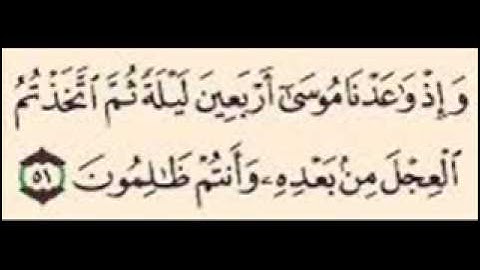 وَإِذْ وَٰعَدْنَا مُوسَىٰٓ أَرْبَعِينَ لَيْلَةً ثُمَّ ٱتَّخَذْتُمُ
ٱلْعِجْلَ مِنۢ بَعْدِهِۦ وَأَنتُمْ ظَٰلِمُونَ ٥١